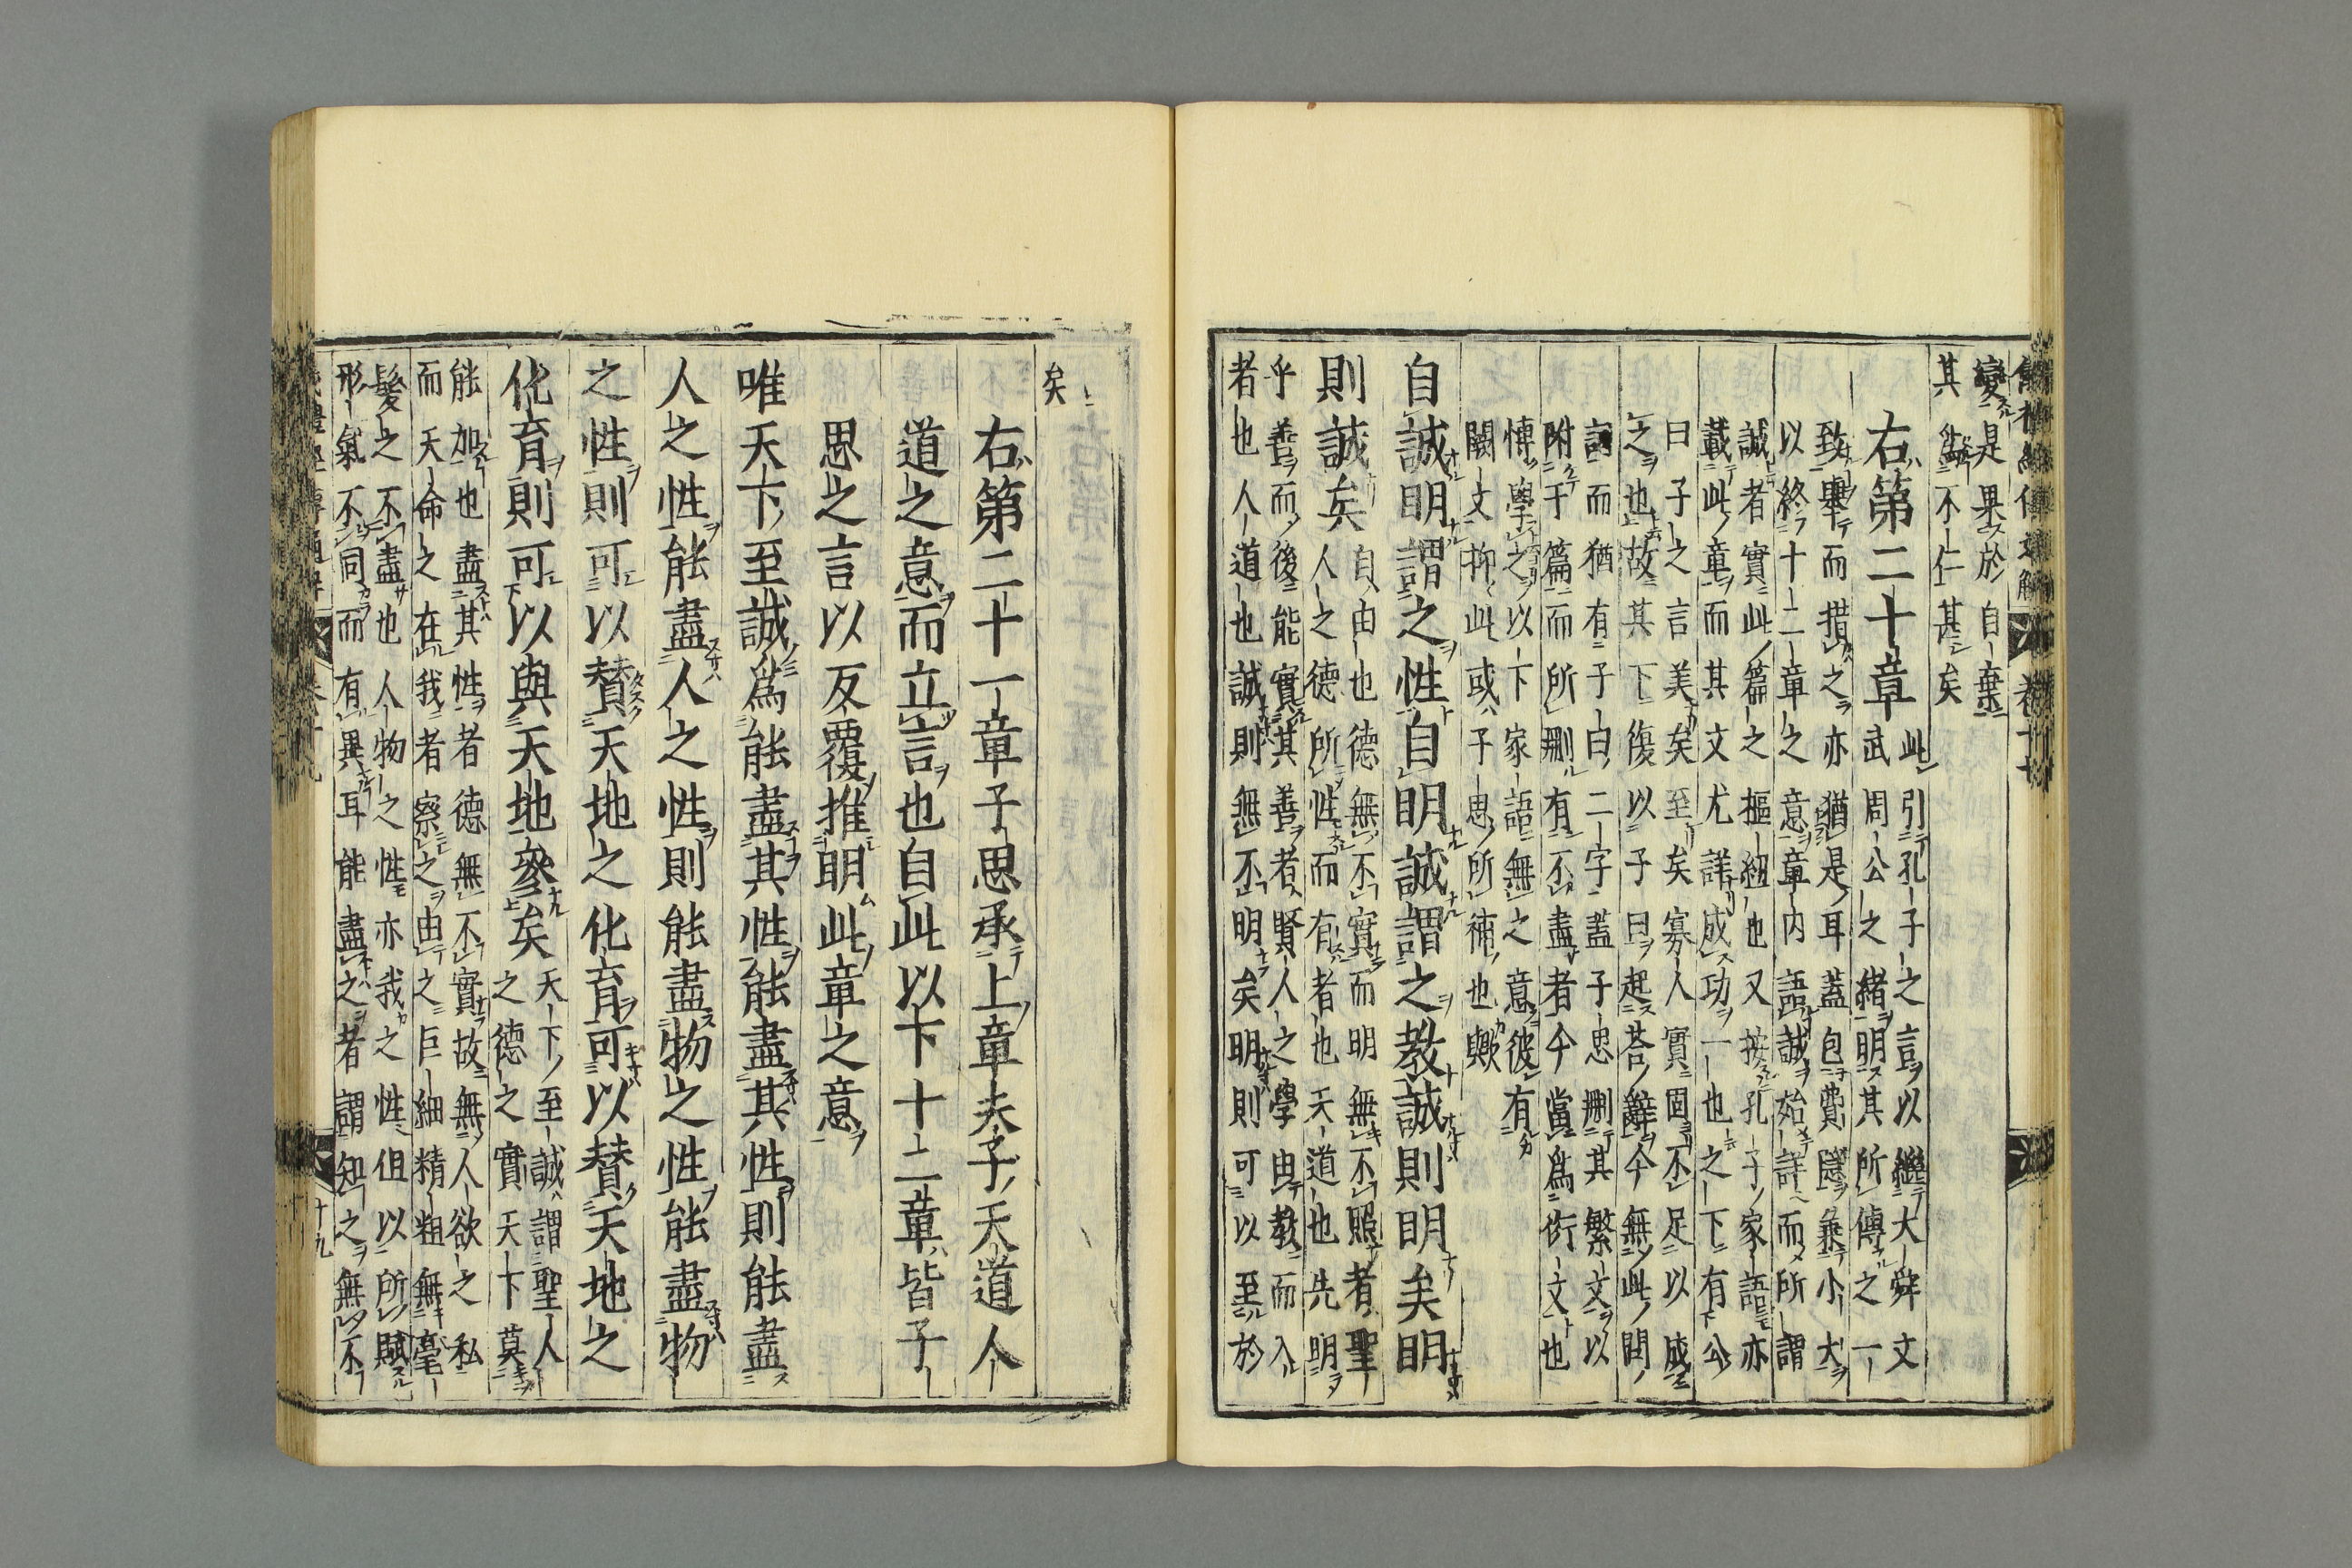 變是果於自棄
其爲不仁甚矣
右第二十章
此引孔子之言以繼大舜文
武周公之緒明其所傳之一
致舉而措之亦猶是耳蓋包費隱兼小大
以終十二章之意章內語誠始詳而所謂
誠者實此篇之樞紐也又按孔子家語亦
載此章而其文尤詳成功一也之下有公
曰子之言美矣至矣寡人實固不足以成
之也故其下復以子曰起荅辭今無此問
詞而猶有子曰二字蓋子思刪其繁文以
附于篇而所刪有不盡者今當爲衍文也
博學之以下家語無之意彼有
闕文抑此或子思所補也歟
自誠明謂之性自明誠謂之教誠則明矣明
則誠矣
自由也德無不實而明無不照者聖
人之德所性而有者也天道也先明
乎善而後能實其善者賢人之學由教而入
者也人道也誠則無不明矣明則可以至於
矣
右第二十一章子思承上章夫子天道人
道之意而立言也自此以下十二章皆子
思之言以反覆推明此章之意
唯天下至誠爲能盡其性能盡其性則能盡
人之性能盡人之性則能盡物之性能盡物
之性則可以贊天地之化育可以贊天地之
化育則可以與天地參矣
天下至誠謂聖人
之德之實天下莫
能加也盡其性者德無不實故無人欲之私
而天命之在我者察之由之巨細精粗無毫
髮之不盡也人物之性亦我之性但以所賦
形氣不同而有異耳能盡之者謂知之無不
十九